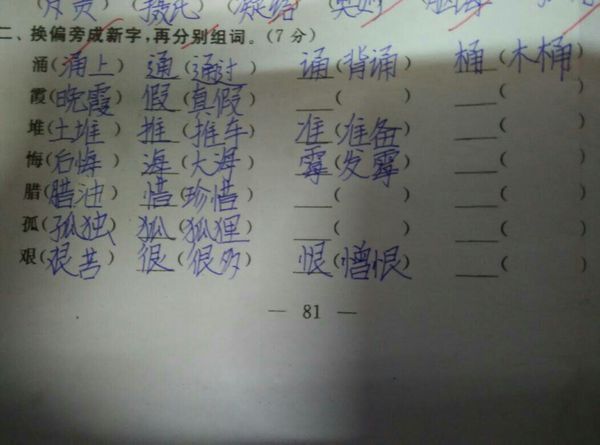 二、换偏旁成新字,再分别组词。(7分)
涌(涌上) 通(通过) 诵(背诵) 桶(木桶)
霞(晚霞) 假(真假) ( ) ( )
堆(土堆) 推(推车) 准(准备) ( )
悔(后悔) 海(大海) 霉(发霉) ( )
腊(腊油) 惜(珍惜) ( ) ( )
孤(孤独) 狐(狐狸) ( ) ( )
艰(艰苦) 很(很多) 恨(憎恨) ( )
— 81 —